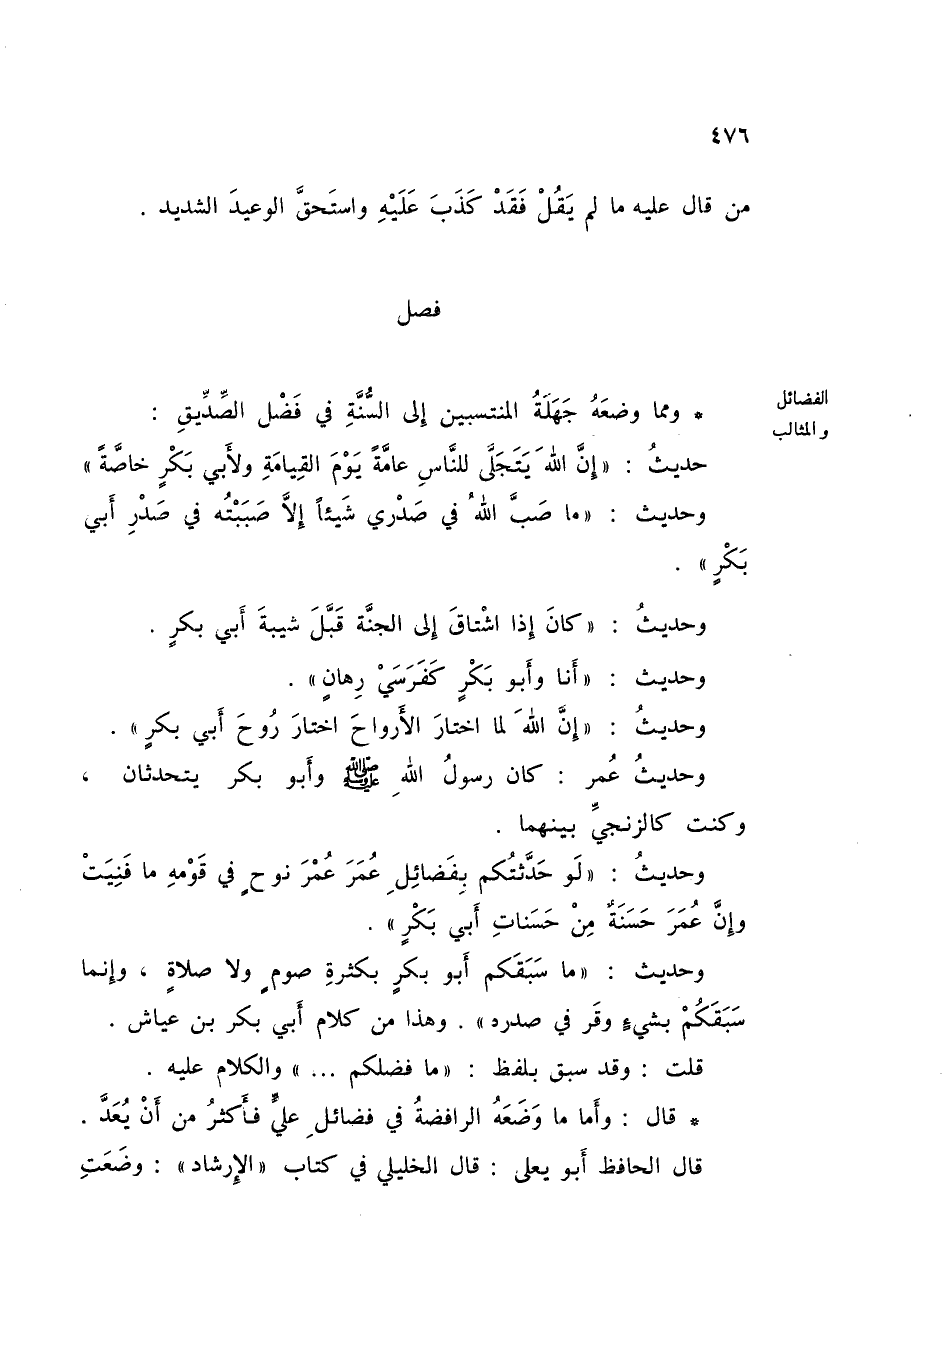 ٤٧٦
من قال عليه ما لم يَقُلْ فَقَدْ كَذَبَ عَلَيْهِ واستَحقَّ الوعيدَ الشديد .
فصل
الفضائل
والمثالب
* ومما وضعَهُ جَهَلَةُ المنتسبين إلى السُّنَّةِ في فَضْل الصِّدِّيقِ :
حديثُ : «إنَّ اللهَ يَتَجَلَّى للنَّاسِ عامَّةً يَوْمَ القِيامَةِ ولأَبي بَكْرٍ خاصَّةً»
وحديث : «ما صَبَّ اللهُ في صَدْري شَيئاً إلاَّ صَبَبْتُه في صَدْرِ أَبي
بَكْرٍ» .
وحديثُ : «كانَ إذا اشْتاقَ إلى الجنَّة قَبَّلَ شيبةَ أَبي بكرٍ .
وحديث : «أَنا وأَبو بَكْرٍ كَفَرَسَيْ رِهانٍ» .
وحديثُ : «إنَّ اللهَ لما اختارَ الأَرواحَ اختارَ رُوحَ أَبي بكرٍ» .
وحديثُ عُمر : كان رسولُ اللهِ ﷺ وأَبو بكر يتحدثان ،
وكنت كالزنجيِّ بينهما .
وحديثُ : «لَو حَدَّثتُكم بِفَضائِلِ عُمَرَ عُمْرَ نوحٍ في قَوْمِهِ ما فَنِيَتْ
وإنَّ عُمَرَ حَسَنَةٌ مِنْ حَسَناتِ أَبي بَكْرٍ» .
وحديث : «ما سَبَقَكم أَبو بكرٍ بكثرةِ صومٍ ولا صلاةٍ ، وإنما
سَبَقَكُمْ بشيءٍ وقَر في صدره» . وهذا من كلام أَبي بكر بن عياش .
قلت : وقد سبق بلفظ : «ما فضلكم ...» والكلام عليه .
* قال : وأَما ما وَضَعَهُ الرافضةُ في فضائلِ عليٍّ فأَكثرُ من أَنْ يُعَدَّ .
قال الحافظ أَبو يعلى : قال الخليلي في كتاب «الإرشاد» : وضَعَتِ